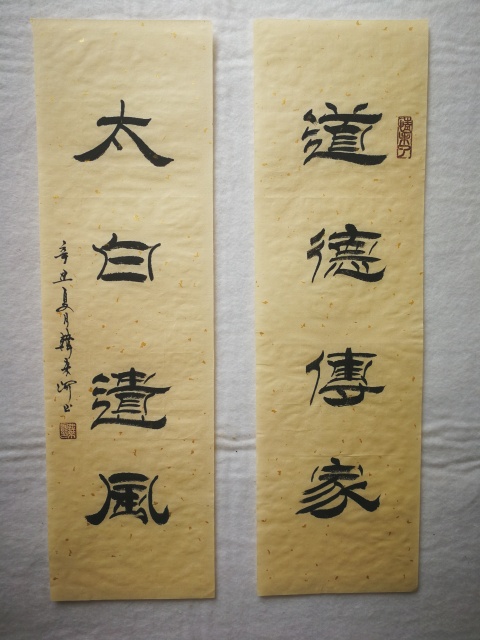 道德傳家
太白遺風
辛丑夏月韓英河书